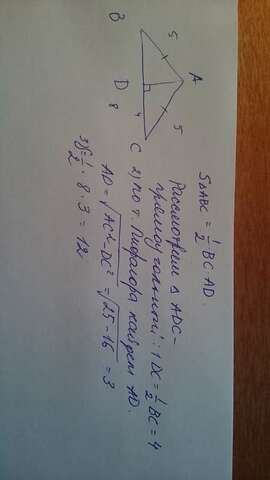 A
5
5
B
D
4
C
8
S△ABC = 1/2 BC·AD.
Рассмотрим △ADC –
прямоугольный: 1) DC = 1/2 BC = 4
2) по т. Пифагора найдем AD.
AD = √AC²-DC² = √25-16 = 3
3) S = 1/2 · 8 · 3 = 12